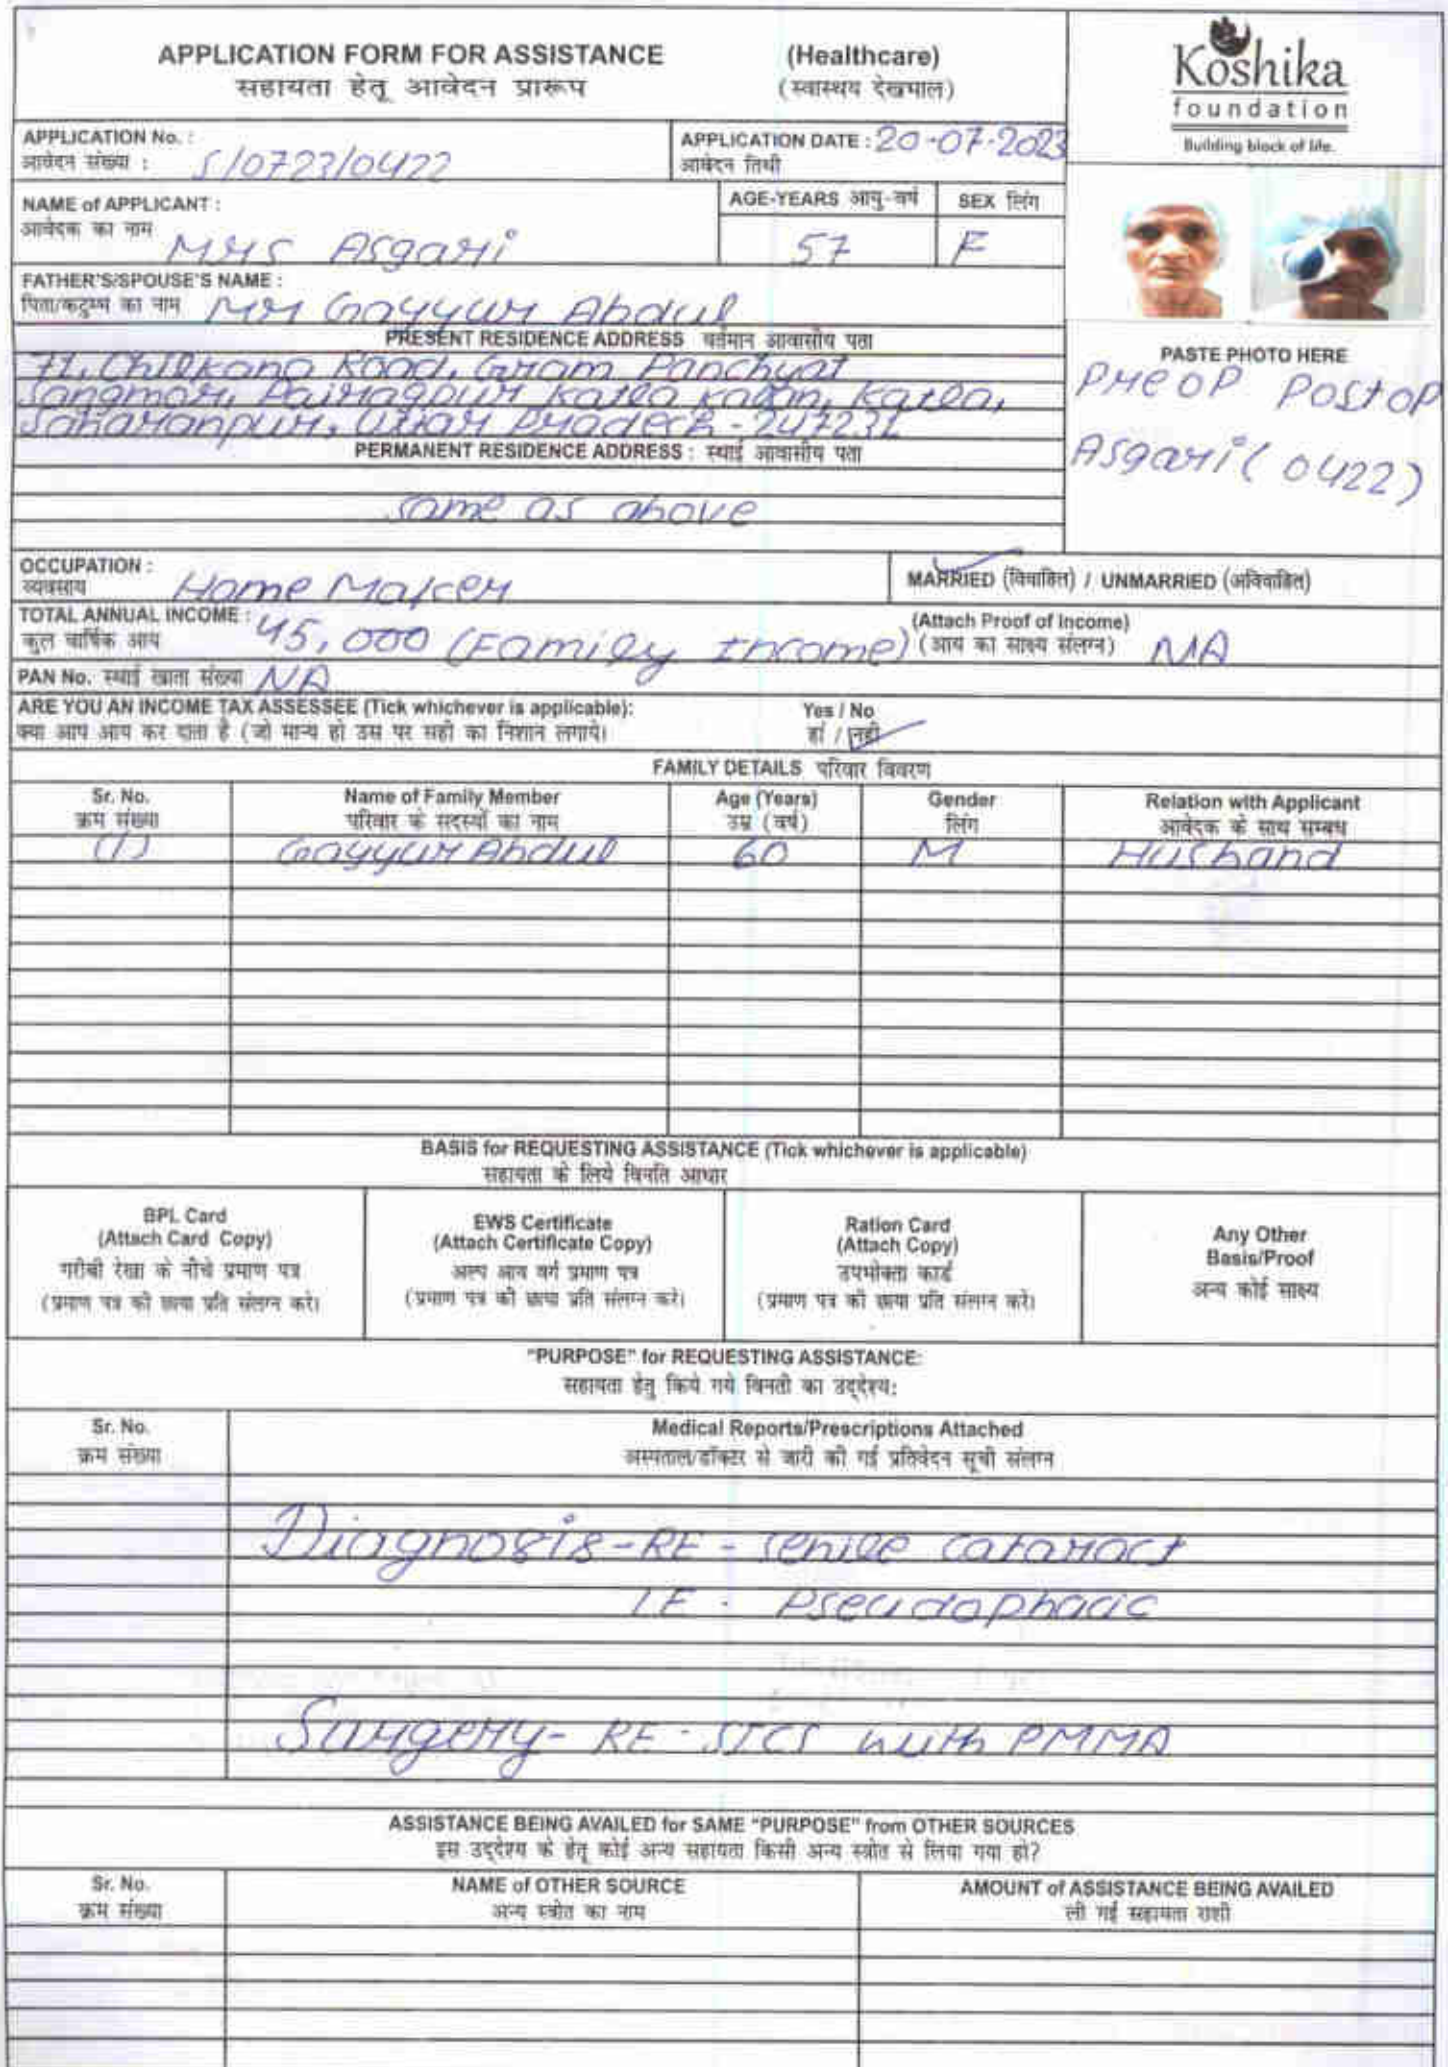 APPLICATION FORM FOR ASSISTANCE (Healthcare)
सहायता हेतू आवेदन प्रारूप (स्वास्थय देखभाल)
Koshika
foundation
Building block of life.
APPLICATION No. :
आवेदन संख्या : S/0723/0422
APPLICATION DATE : 20-07-2023
आवेदन तिथी
NAME of APPLICANT :
आवेदक का नाम Mrs Asgari
AGE-YEARS आयु-वर्ष 57
SEX लिंग F
FATHER'S/SPOUSE'S NAME :
पिता/कटुम्ब का नाम Mr Gayyur Abdul
PRESENT RESIDENCE ADDRESS वर्तमान आवासीय पता
71, Chilkana Road, Gram Panchyat
Kazan,
Saharanpur, Uttar Pradesh - 247231
PERMANENT RESIDENCE ADDRESS : स्थाई आवासीय पता
same as above
PASTE PHOTO HERE
PreOP PostOP
Asgari (0422)
OCCUPATION :
व्यवसाय Home Maker
MARRIED (विवाहित) / UNMARRIED (अविवाहित)
TOTAL ANNUAL INCOME : 45,000 (Family Income)
कुल वार्षिक आय
(Attach Proof of Income)
(आय का साक्ष्य संलग्न) NA
PAN No. स्थाई खाता संख्या NA
ARE YOU AN INCOME TAX ASSESSEE (Tick whichever is applicable): Yes / No
क्या आप आय कर दाता है (जो मान्य हो उस पर सही का निशान लगाये। हां / नही
FAMILY DETAILS परिवार विवरण
Sr. No. Name of Family Member Age (Years) Gender Relation with Applicant
क्रम संख्या परिवार के सदस्यों का नाम उम्र (वर्ष) लिंग आवेदक के साथ सम्बध
(1) Gayyur Abdul 60 M Husband
BASIS for REQUESTING ASSISTANCE (Tick whichever is applicable)
सहायता के लिये विनति आधार
BPL Card
(Attach Card Copy)
गरीबी रेखा के नीचे प्रमाण पत्र
(प्रमाण पत्र की छाया प्रति संलग्न करे।
EWS Certificate
(Attach Certificate Copy)
अल्प आय वर्ग प्रमाण पत्र
(प्रमाण पत्र की छाया प्रति संलग्न करे।
Ration Card
(Attach Copy)
उपभोक्ता कार्ड
(प्रमाण पत्र की छाया प्रति संलग्न करे।
Any Other
Basis/Proof
अन्य कोई साक्ष्य
"PURPOSE" for REQUESTING ASSISTANCE:
सहायता हेतु किये गये विनती का उद्देश्य:
Sr. No. Medical Reports/Prescriptions Attached
क्रम संख्या अस्पताल/डॉक्टर से जारी की गई प्रतिवेदन सूची संलग्न
Diagnosis - RE - senile cataract
LE - Pseudophacic
Surgery - RE - SICS with PMMA
ASSISTANCE BEING AVAILED for SAME "PURPOSE" from OTHER SOURCES
इस उद्देश्य के हेतू कोई अन्य सहायता किसी अन्य स्त्रोत से लिया गया हो?
Sr. No. NAME of OTHER SOURCE AMOUNT of ASSISTANCE BEING AVAILED
क्रम संख्या अन्य स्त्रोत का नाम ली गई सहायता राशी